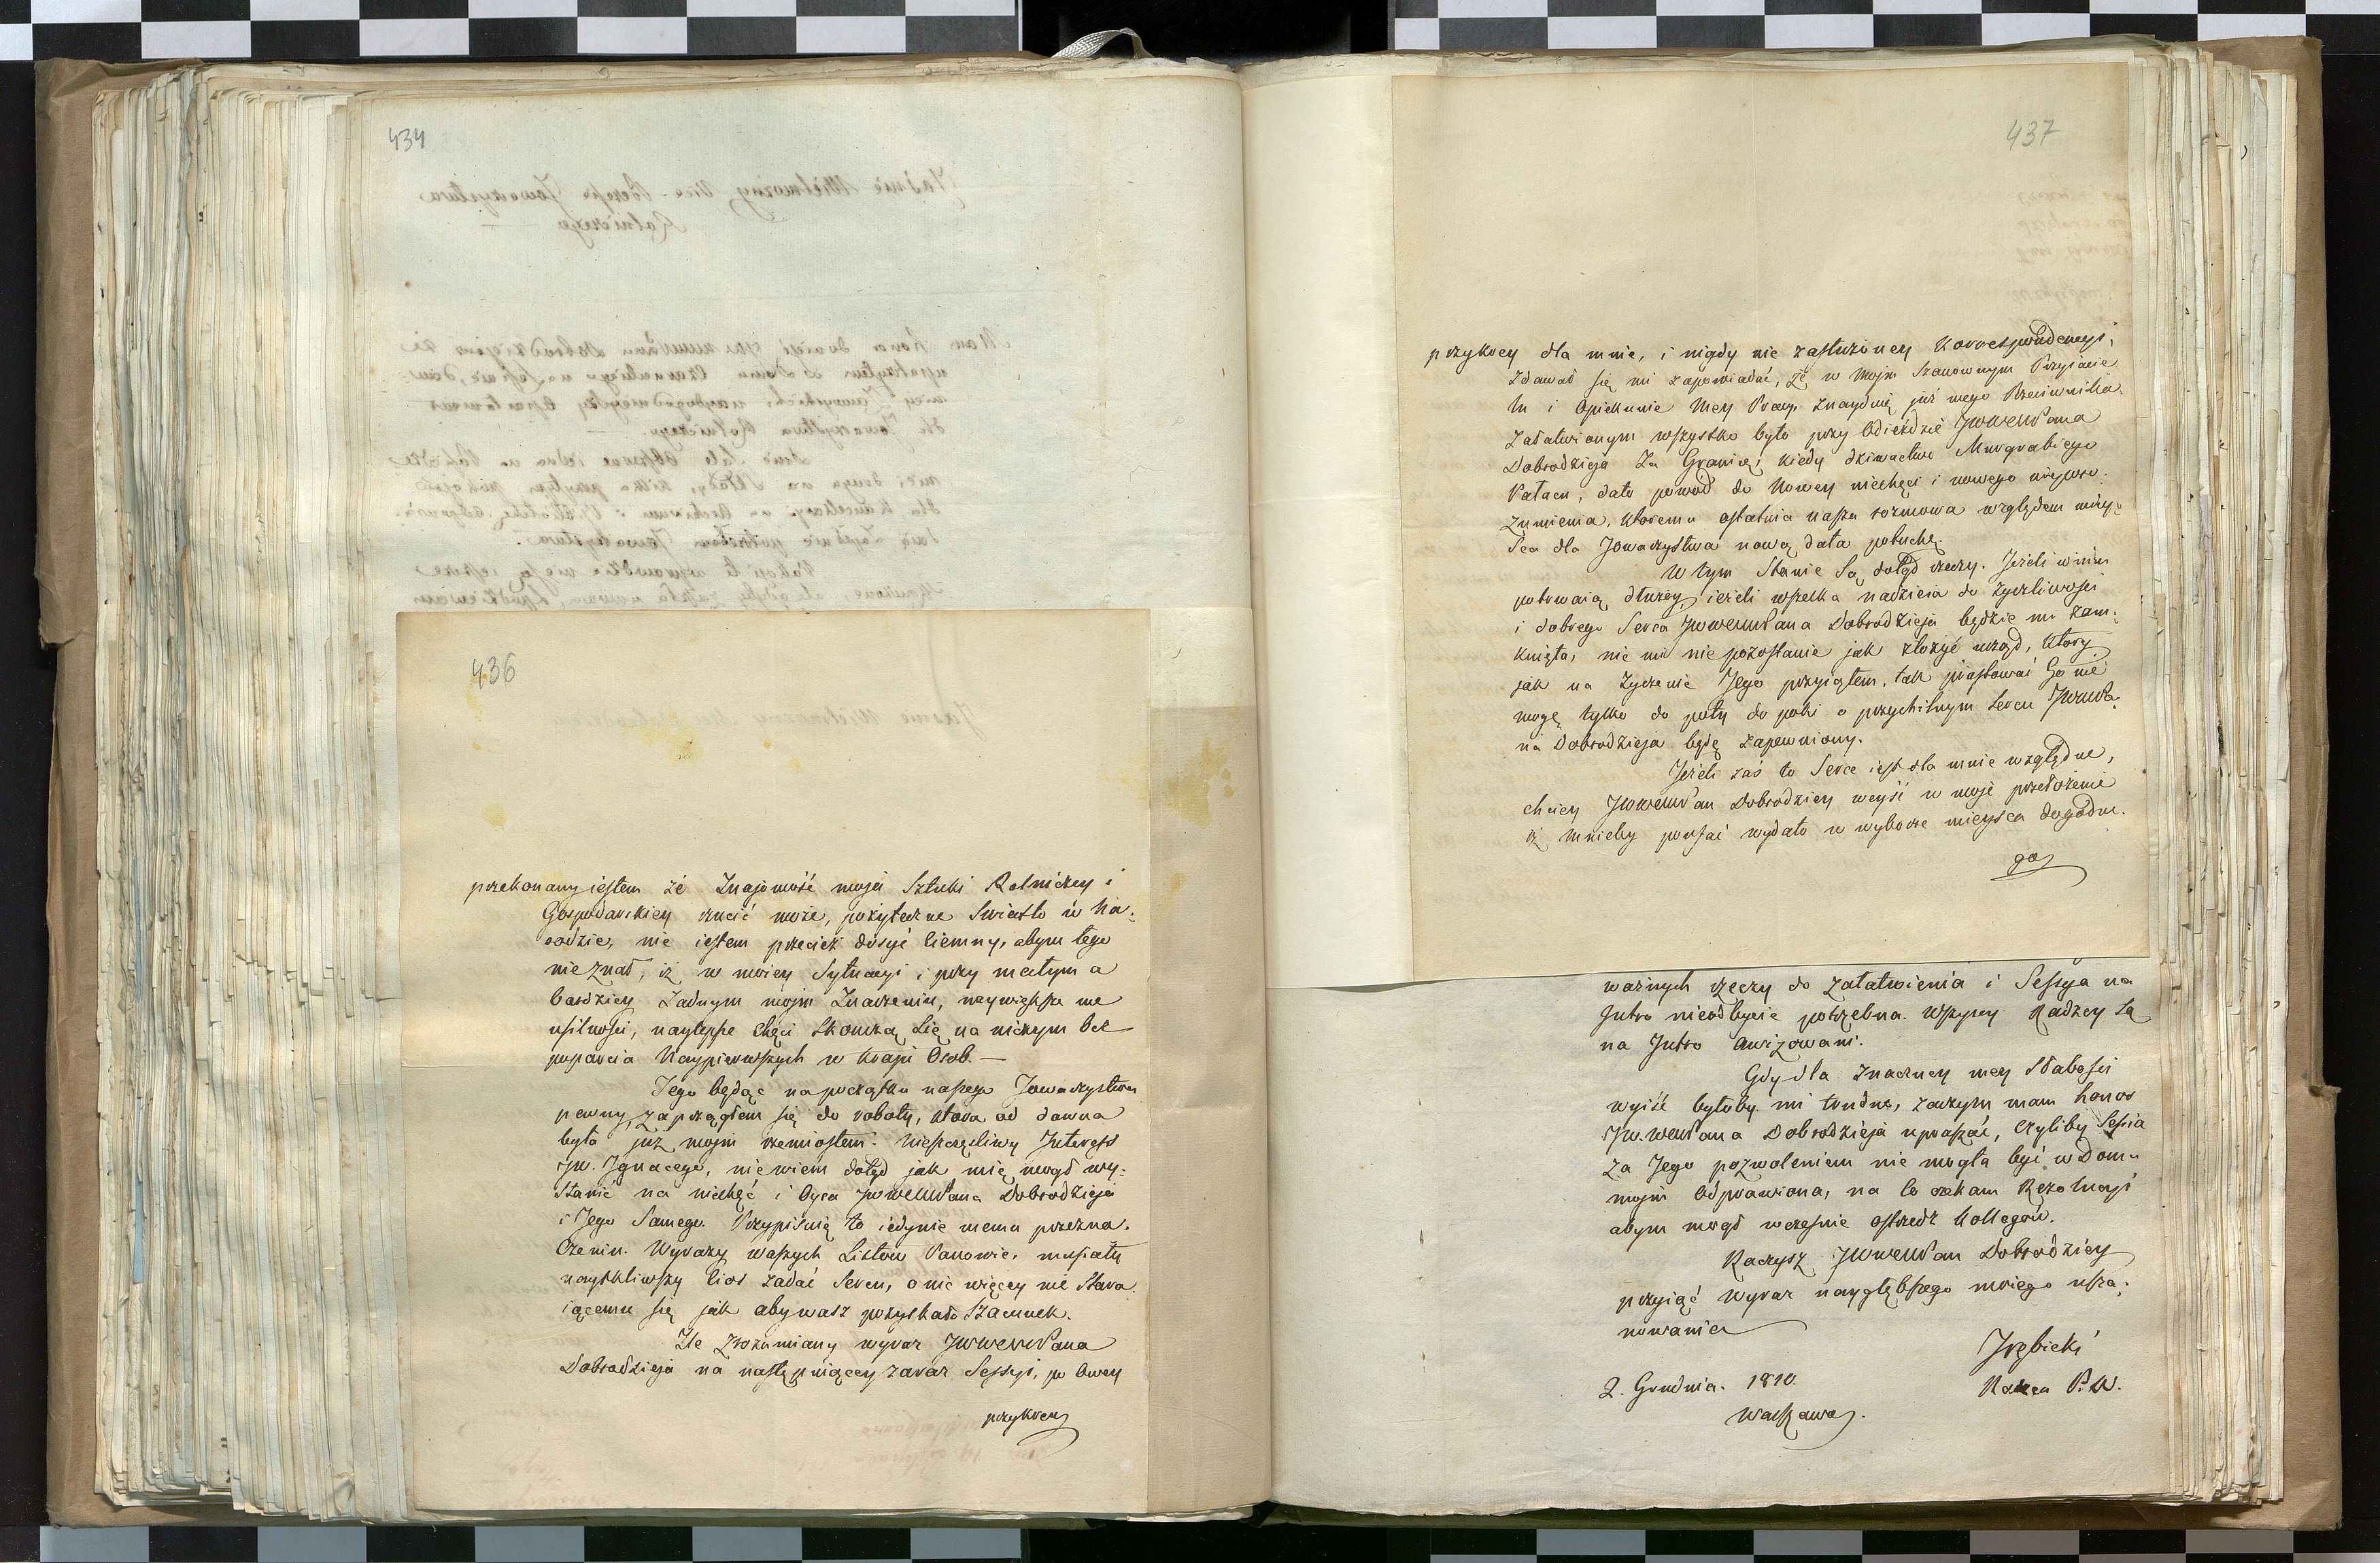 434
436
przekonany iestem że Znajomość mojei Sztuki Rolniczey i
Gospodarskiey rzucić może, pożyteczne Swiatło w Na-
rodzie, nie iestem przecież dosyć Ciemny, abym tego
nie znał, iż w moiey Sytuacyi i przy małym a
bardziey Żadnym mojm Znaczeniu, naywiększe me
usilności, naylepsze Chęci Skończą Się na niczym bez
poparcia Naypierwszych w Kraju Osob. —
Tego będąc na początku naszego Towarzystwa
pewny, zaprzągłem się do roboty, która od dawna
była już mojm rzemiosłem. Nieszczęśliwy Interess
Jw. Ignacego, nie wiem dotąd jak mię mogł wy-
stawić na niechęć i Oyca JWWMPana Dobrodzieja
i Jego Samego. Przypisuię to iedynie memu przezna-
czeniu. Wyrazy waszych Listow Panowie, musiały
naytkliwszy Cios zadać Sercu, o nic więcey nie Stara
iącemu się jak aby wasz pozyskało Szacunek.
Źle zrozumiany wyraz JWWMPana
Dobrodzieja na następuiącey zaraz Sessyi, po Owey
przykrey
437
przykrey dla mnie, i nigdy nie zasłużoney Korrespondencyi,
Zdawał się mi zapowiadać, że w Mojm Szanownym Przyiacie
lu i Opiekunie Mey Pracy, znayduię już mego Przeciwnika.
Załatwionym wszystko było przy Odieździe JWWMPana
Dobrodzieja Za Granicę; kiedy dziwactwo Murgrabiego
Pałacu, dało powod do Nowey niechęci i nowego nieporo-
zumienia, któremu ostatnia nasza rozmowa względem miey-
sca dla Towarzystwa nową dała pobudkę.
W tym Stanie Są dotąd rzeczy. Jeżeli w nim
potrwaią dłużey, ieżeli wszelka nadzieia do życzliwości
i dobrego Serca JWWMPana Dobrodzieja będzie mi zam-
knięta, nic mi nie pozostanie jak złożyć urząd, który
jak na Życzenie Jego przyiąłem, tak piastować Go nie
mogę tylko do poty do poki o przychilnym Sercu JWWMPa-
na Dobrodzieja będę zapewniony.
Jeżeli zaś to Serce iest dla mnie względne,
chciey JWWMPan Dobrodziey weyść w moje przełożenie
iż mnieby wydało w wyborze mieysca dogodne.
go
ważnych rzeczy do załatwienia i Sessya na
Jutro nieodbycie potrzebna. Wszyscy Radzcy Są
na Jutro Awizowani.
Gdy dla Znaczney mey Słabości
wyiść byłoby mi trudne, zaczym mam honor
JWWMPana Dobrodzieja upraszać, Czyliby Sessia
za Jego pozwoleniem nie mogła być w Domu
mojm Odprawiona, na Co czekam Rezolucyi
abym mogł wcześnie ostrzedz Kollegów.
Raczysz JWWMPan Dobrodziey
przyiąć Wyraz naygłębszego moiego usza-
nowania
Trębicki
Radca P. W.
2. Grudnia. 1810.
Warszawa.